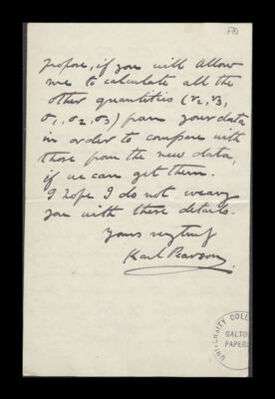 propose, if you will allow
me to calculate all the
other quantities (r2, r3,
σ1, σ2, σ3) from your data
in order to compare with
those from the new data,
if we can get them.
I hope I do not weary
you with these details.
Yours very truly
Karl Pearson
UNIVERSITY COLL
GALTON
PAPERS